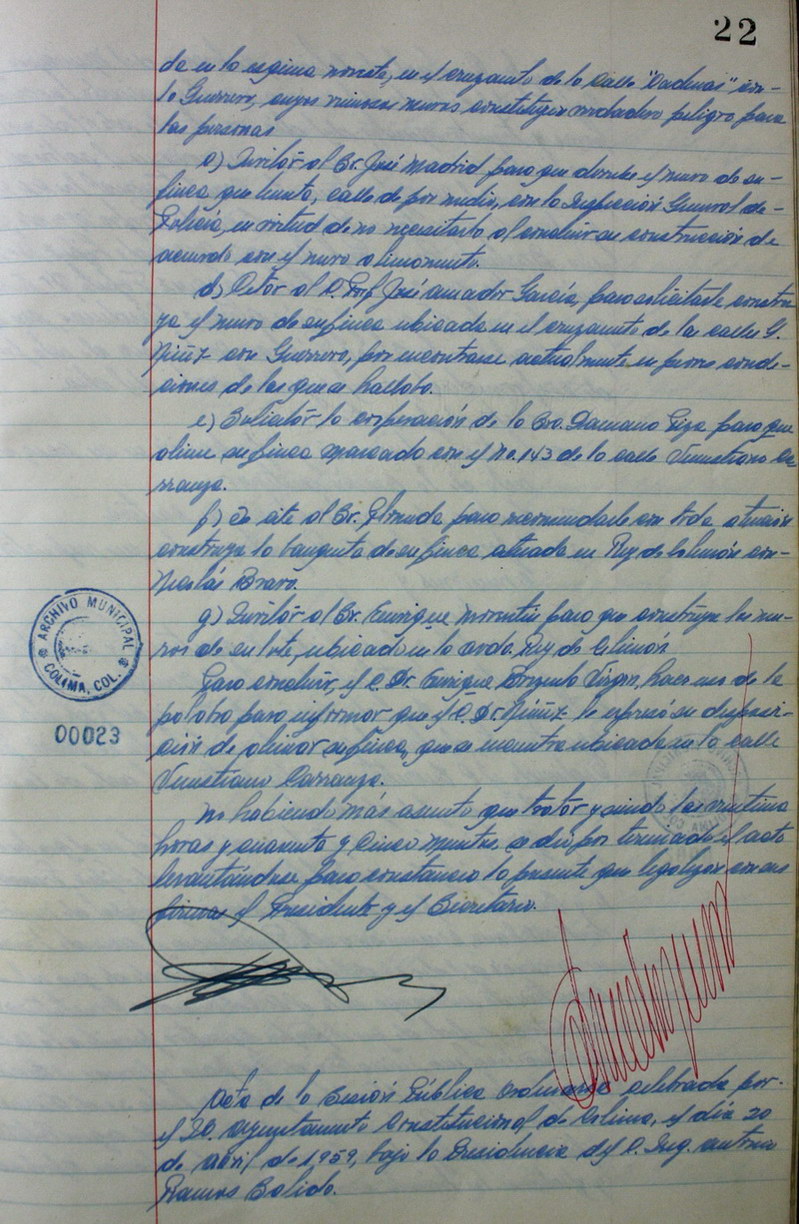 22
da en la esquina noreste, en el cruzamiento de la calle "Cárdenas" con-
la Guerrero, cuyos ruinosos muros constituyen verdadero peligro para
las personas
c) Invitar al Sr. José Madrid para que derrumbe el muro de su-
finca que linda, calle de por medio, con la Inspección General de-
Policía, en virtud de no necesitarlo al concluir su construcción de
acuerdo con el nuevo alineamiento.
d) Citar al C. Prof. José Amador García, para solicitarle constru-
ya el muro de su finca ubicada en el cruzamiento de la calle G.
Núñez con Guerrero, por encontrarse actualmente en peores condi-
ciones de las que se hallaba.
e) Solicitar la cooperación de la Sra. para que
aline su finca marcada con el No. 143 de la calle Venustiano Ca-
rranza.
f) Se cite al Sr. para recomendarle con toda atención
construya la banqueta de su finca situada en Rey de Colimán con-
Nicolás Bravo.
g) Invitar al Sr. Enrique para que construya los mu-
ros de su lote, ubicado en la avda. Rey de Colimán.
Para concluir, el C. Dr. Enrique Virgen, hace uso de la
palabra para informar que el C. Dr. Núñez le expresó su disposi-
ción de alinear su finca, que se encuentra ubicada en la calle
Venustiano Carranza.
No habiendo más asunto que tratar y siendo las veintiuna
horas y cuarenta y cinco minutos se dio por terminado el acto
levantándose para constancia la presente que legalizan con sus
firmas el Presidente y el Secretario.
ARCHIVO MUNICIPAL
COLIMA, COL.
00023
Acta de la Sesión Pública Ordinaria celebrada por-
el H. Ayuntamiento Constitucional de Colima, el día 20
de abril de 1959, bajo la Presidencia del C. Ing. Antonio
Ramos Salido.